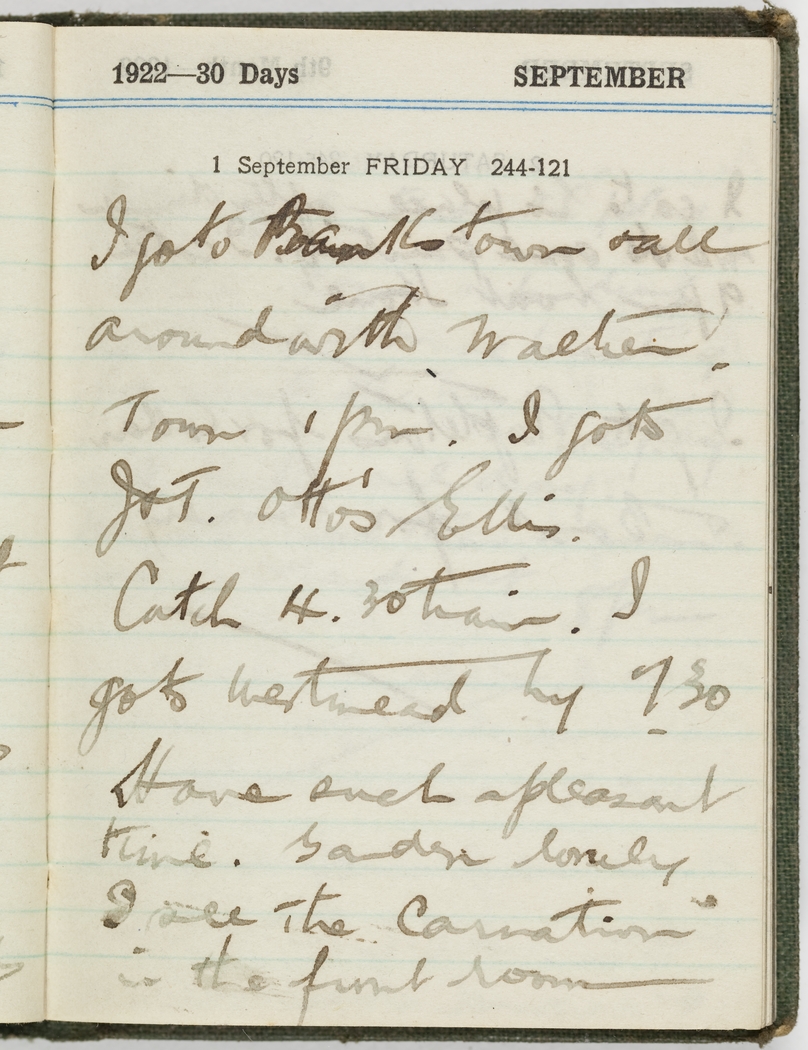 1922—30 Days SEPTEMBER
1 September FRIDAY 244-121
I go to Bankstown & all
around with Walker.
Town 1 pm. I go to
Otto's Ellis.
Catch 4.30 train. I
go to Westmead by 7 30
Have such a pleasant
time. Garden lovely
I see the Carnation
in the front room